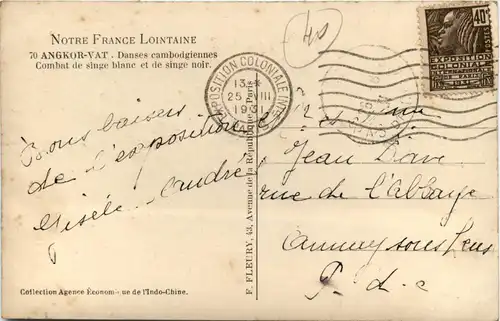 NOTRE FRANCE LOINTAINE
70 ANGKOR-VAT. Danses cambodgiennes
Combat de singe blanc et de singe noir.
Bons baisers
de l'exposition
Gisèle André
Collection Agence Économ ue de l'Indo-Chine.
F. FLEURY, 43, Avenue de la République, Paris
EXPOSITION COLONIALE INTle
13 *
25 VIII
1931
PARIS
40
40c
EXPOSITION
COLONIALE
INTERNATIONALE
PARIS 1931
Jean
rue de l'abbaye
Annay sous Lens
P. d. c